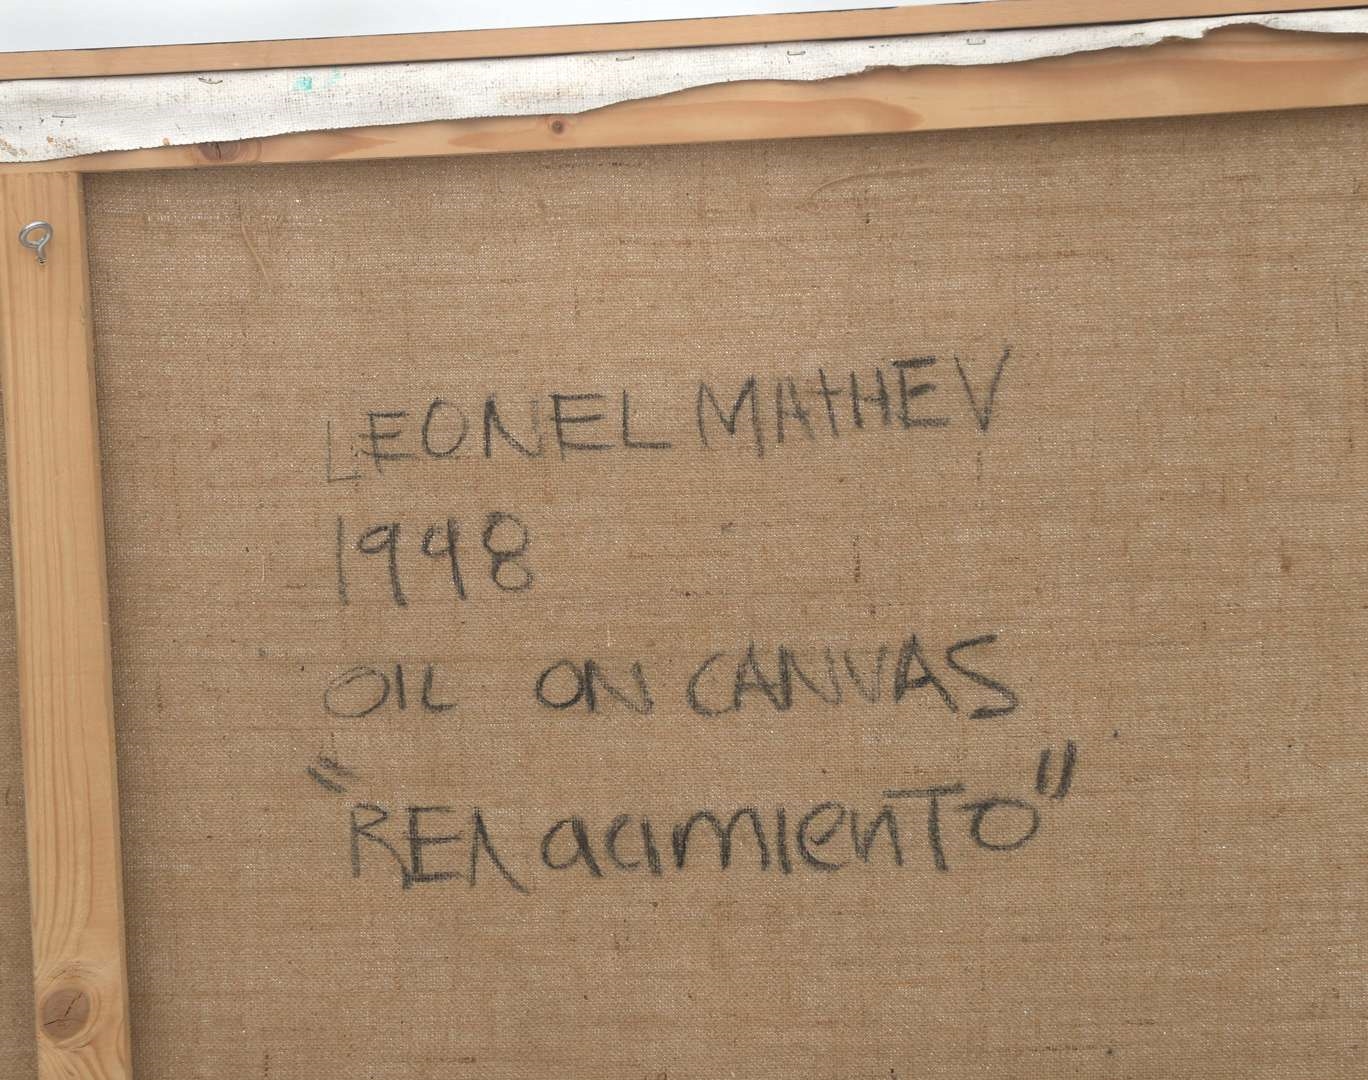 LEONEL MATHEV
1998
OIL ON CANVAS
"RENacimienTo"